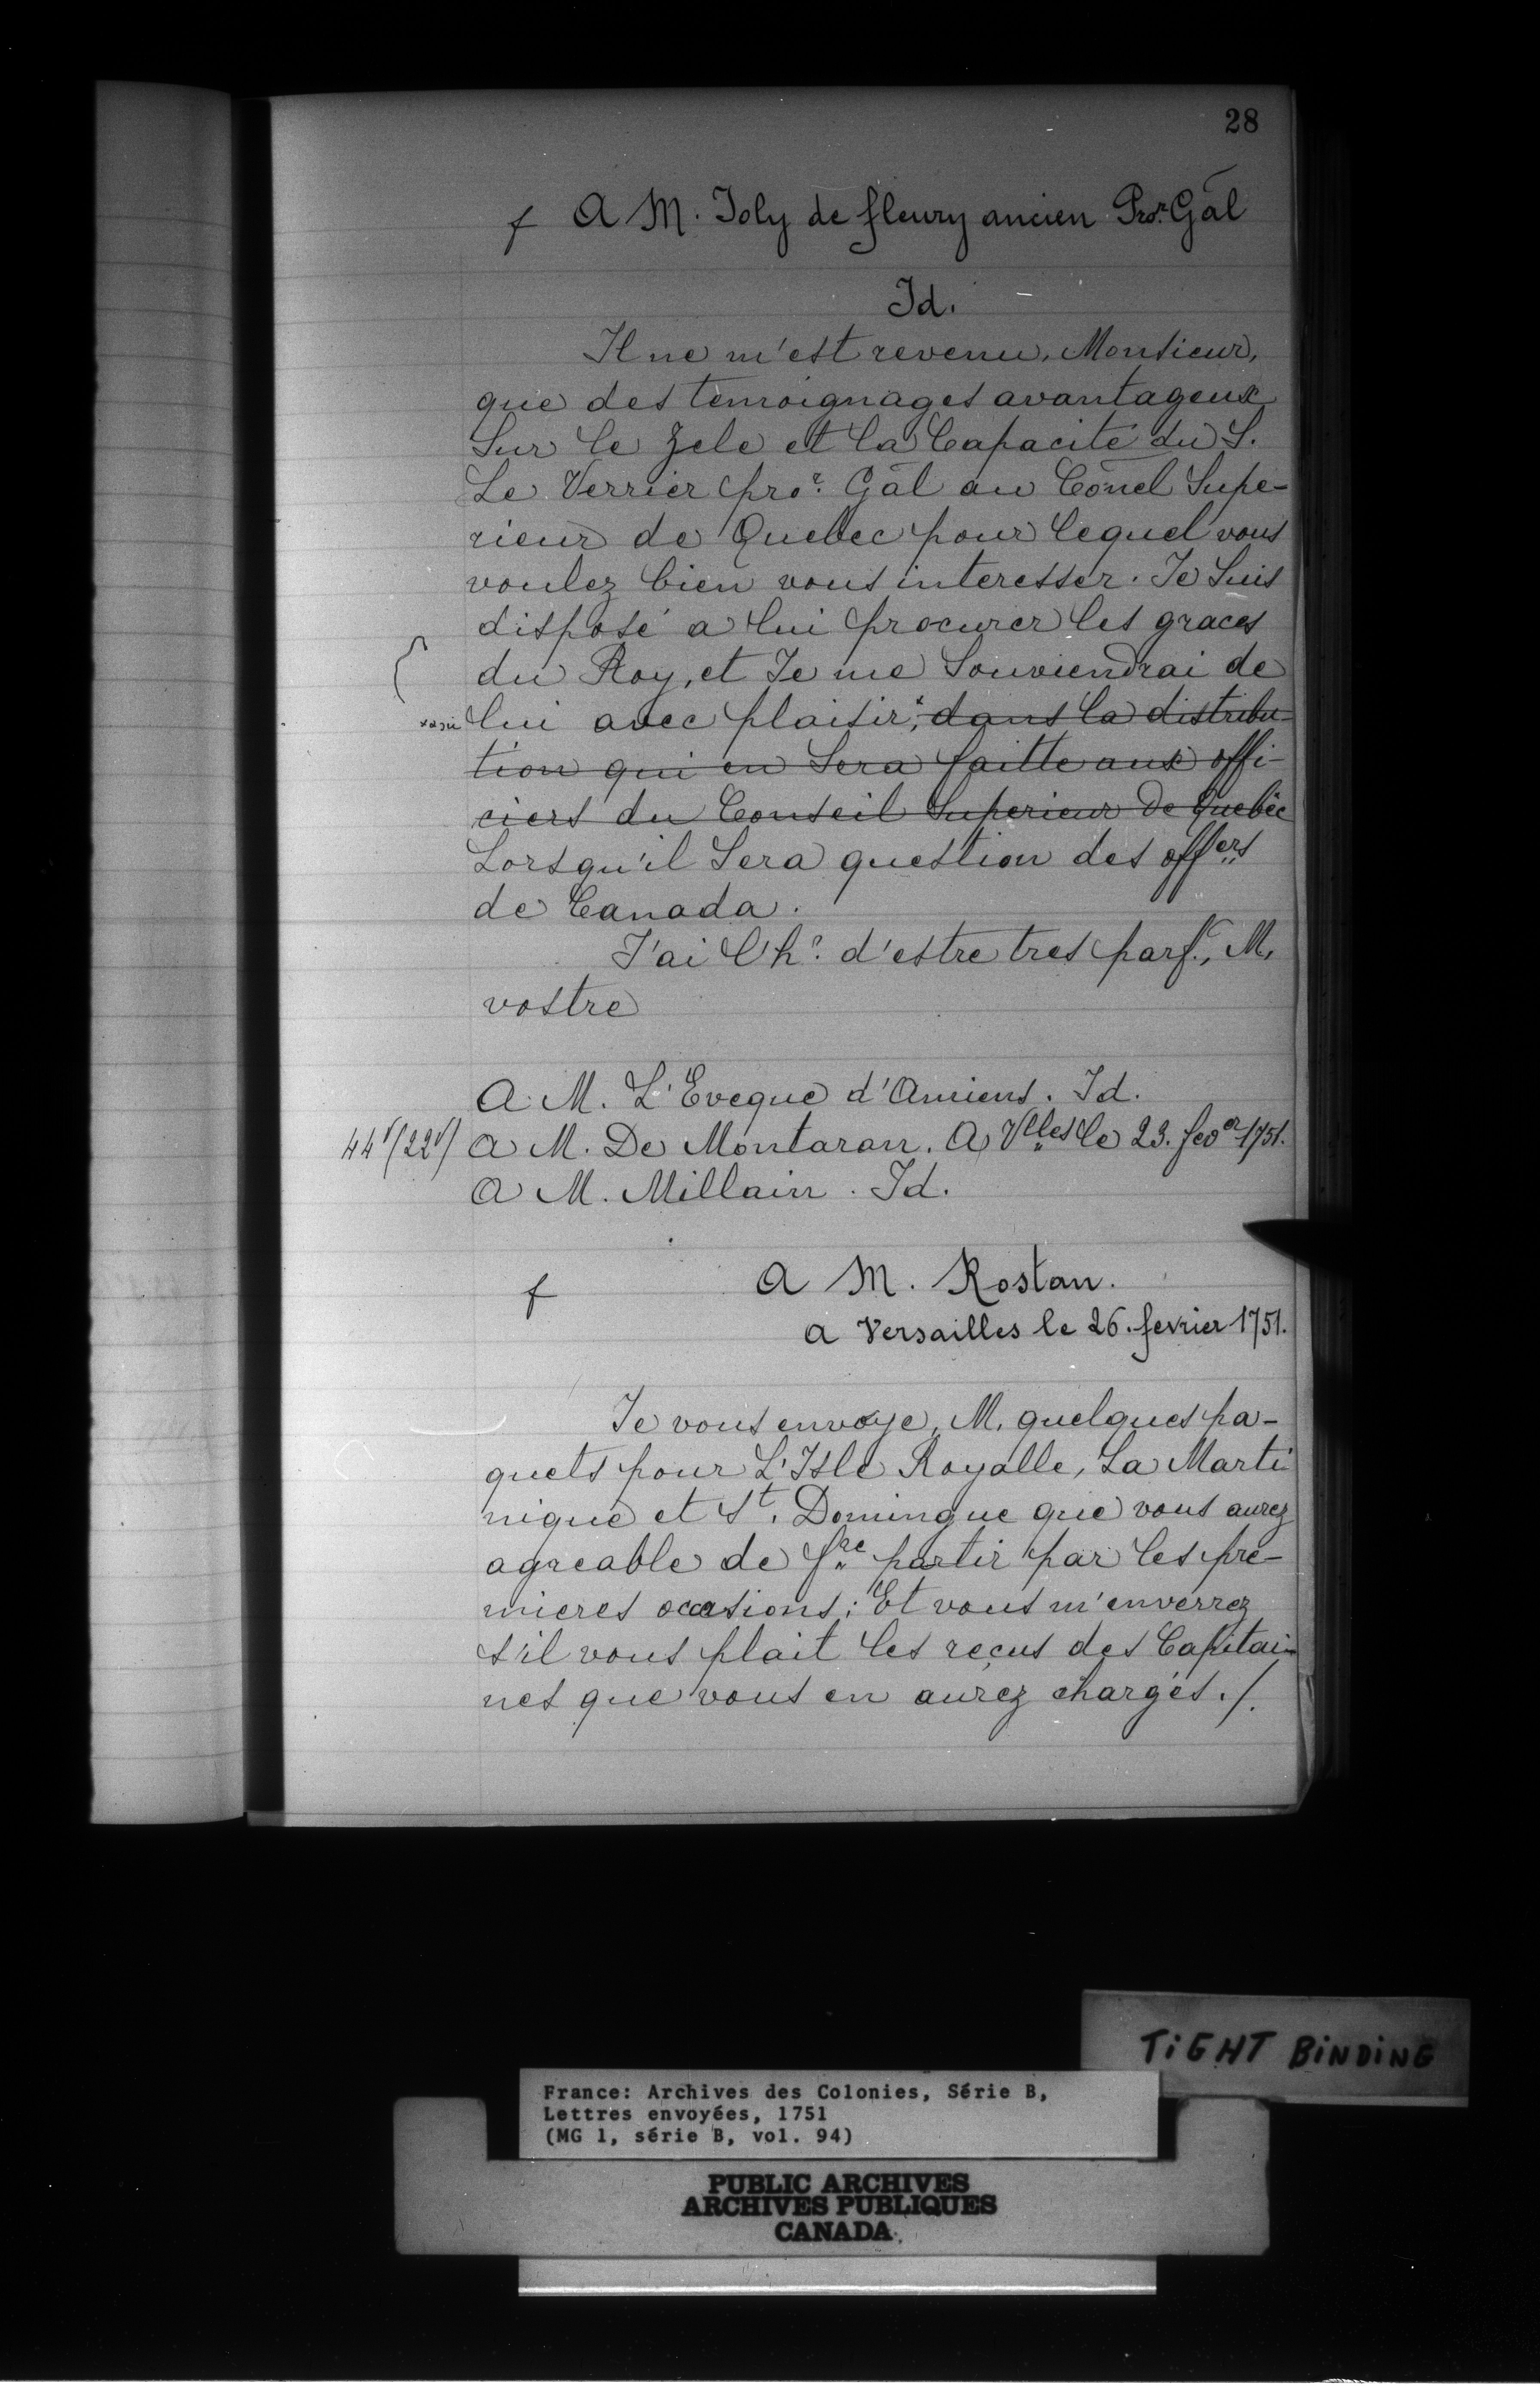 28
f A M. Joly de fleury ancien Pror. Gāl
Id.
Il ne m'est revenu, Monsieur,
que des temoignages avantageux
Sur le Zele et la Capacité du S.
Le Verrier pror. Gāl au Cōnel Supe-
rieur de Quebec pour lequel vous
voulez bien vous interesser. Je Suis
disposé a lui procurer les graces
du Roy, et Je me Souviendrai de
lui avec plaisir, dans la distribu-
tion qui en Sera faitte aux offi-
ciers du Conseil Superieur de Quebec
Lorsqu'il Sera question des offers
de Canada.
J'ai l'hr. d'estre tres parft., M,
vostre
A M. L'Eveque d'Amiens. Id.
44v/(22v) A M. De Montaran. A Vlles le 23. fevor 1751.
A M. Millain. Id.
f A M. Rostan.
a Versailles le 26. fevrier 1751.
Je vous envoye, M, quelques pa-
quets pour L'Isle Royalle, La Marti
nique et St. Domingue que vous aurez
agreable de fre partir par les pre-
mieres occasions; Et vous m'enverrez
s'il vous plait les reçus des Capitai-
nes que vous en aurez chargés./.
TIGHT BINDING
France: Archives des Colonies, Série B,
Lettres envoyées, 1751
(MG 1, série B, vol. 94)
PUBLIC ARCHIVES
ARCHIVES PUBLIQUES
CANADA